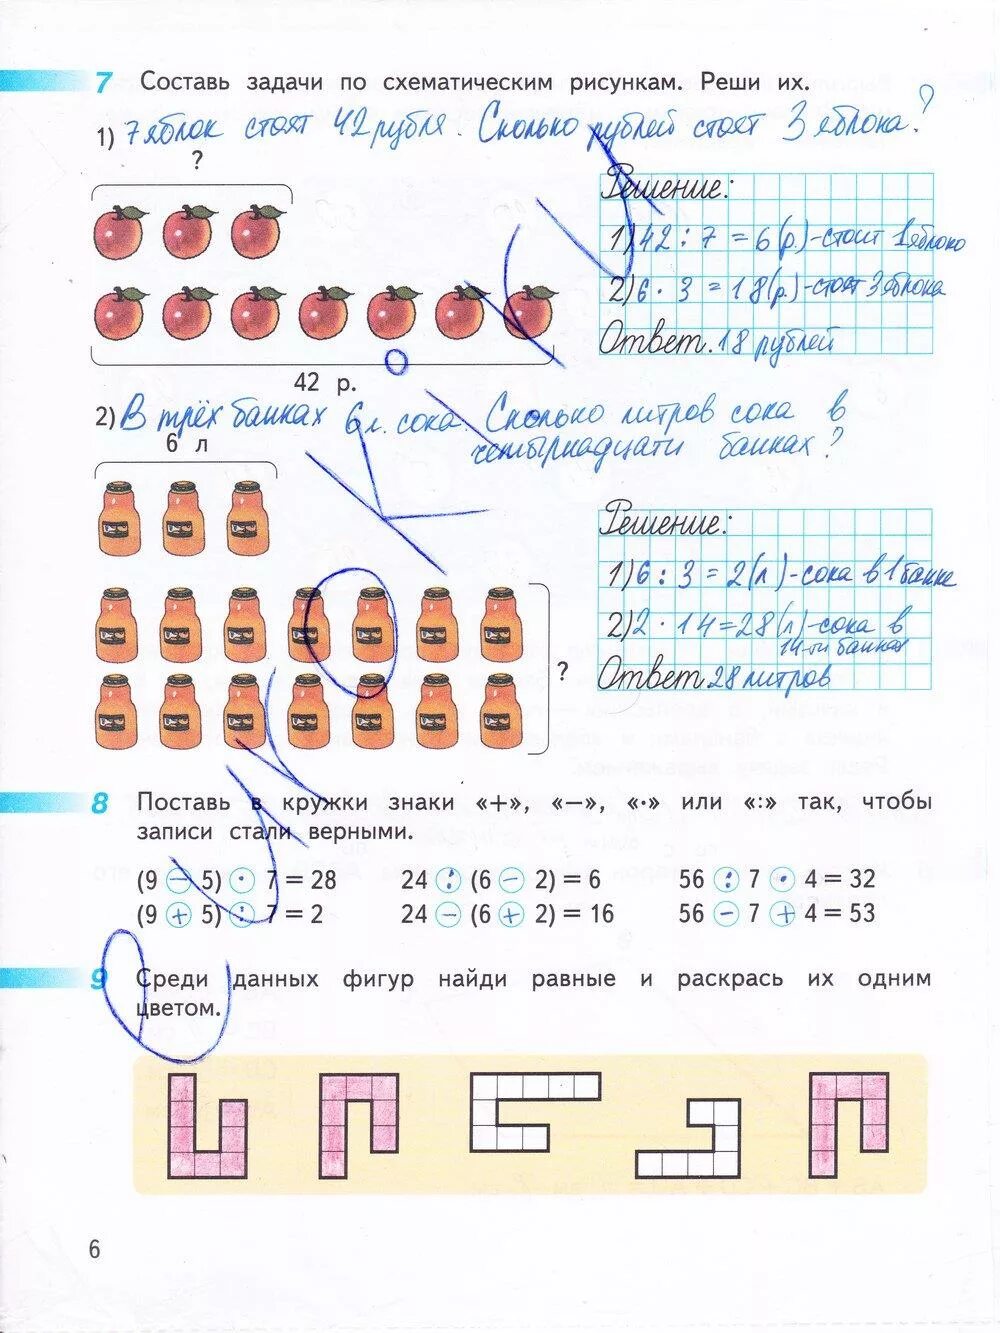 7 Составь задачи по схематическим рисункам. Реши их.
1) 7 яблок стоят 42 рубля. Сколько рублей стоят 3 яблока?
?
Решение:
1) 42 : 7 = 6 (р.) - стоит 1 яблоко
2) 6 · 3 = 18 (р.) - стоят 3 яблока
Ответ. 18 рублей
42 р.
2) В трёх банках 6 л. сока. Сколько литров сока в
четырнадцати банках?
6 л
Решение:
1) 6 : 3 = 2 (л) - сока в 1 банке
2) 2 · 14 = 28 (л) - сока в
14-ти банках
?
Ответ. 28 литров
8 Поставь в кружки знаки «+», «−», «·» или «:» так, чтобы
записи стали верными.
(9 − 5) · 7 = 28 24 : (6 − 2) = 6 56 : 7 · 4 = 32
(9 + 5) : 7 = 2 24 − (6 + 2) = 16 56 − 7 + 4 = 53
9 Среди данных фигур найди равные и раскрась их одним
цветом.
6